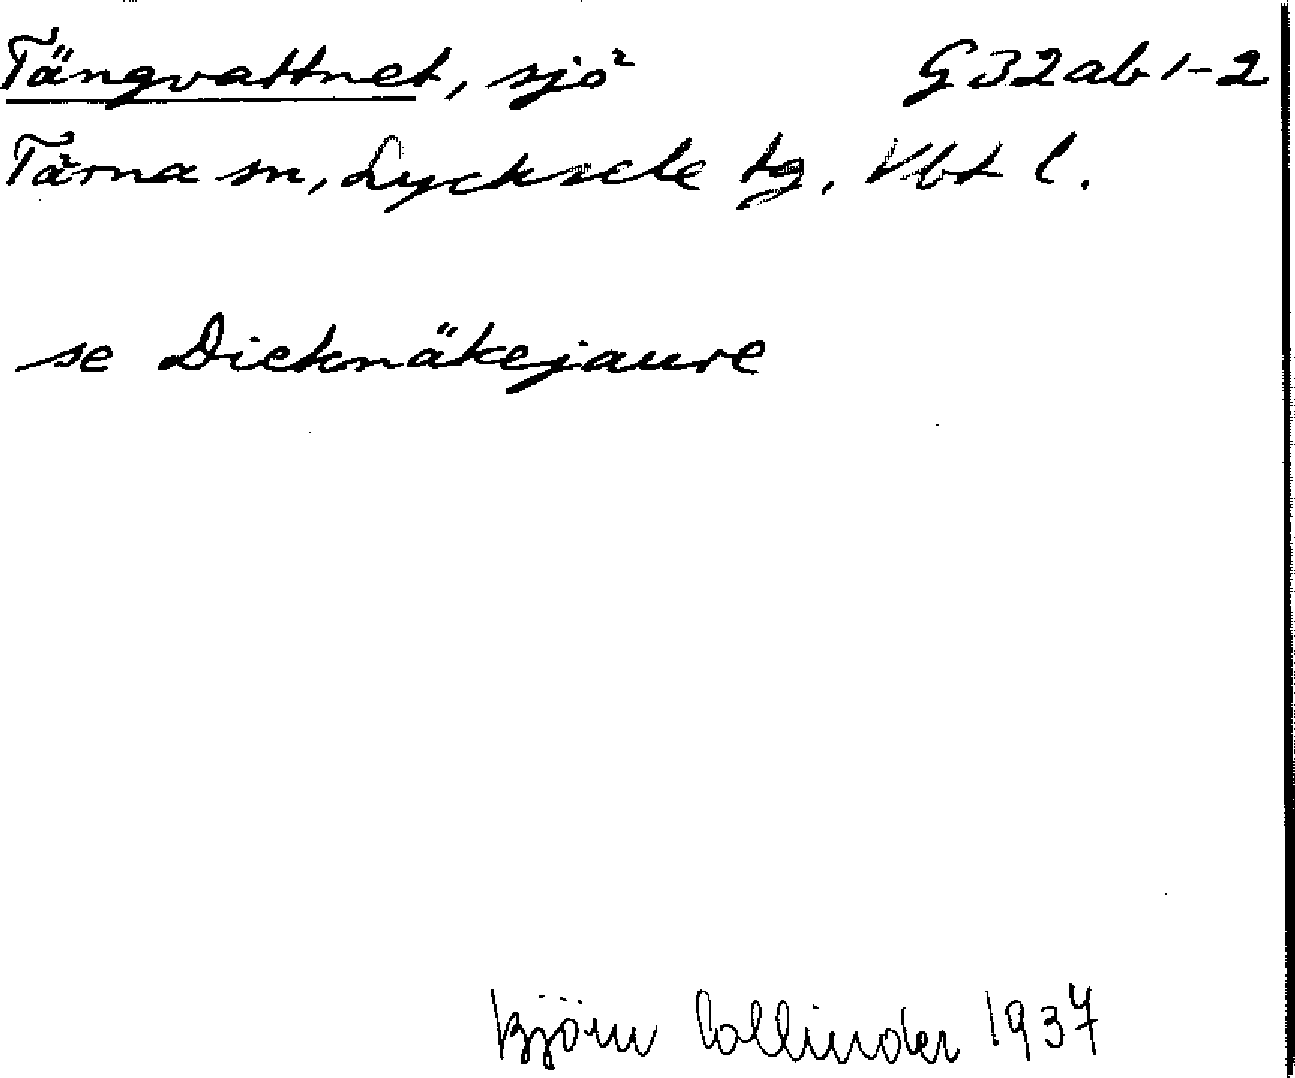 Tängvattnet, sjö G32ab1-2
Tärna sn, Lycksele tg, Vbt l.
se Dieknäkejaure
Björn Collinder 1937